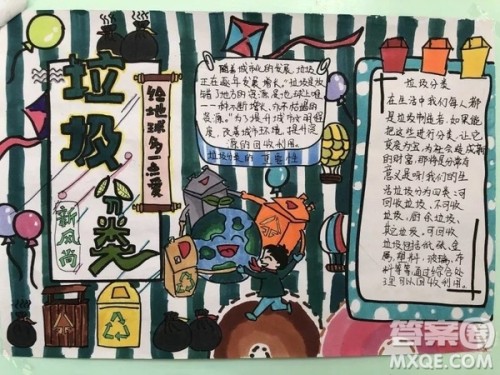 垃圾
分类
新风尚
给地球多一点爱
随着城市化的发展,垃圾
正在逐年增长。"垃圾是放
错了地方的资源,是地球上唯
一一种不断增长、永不枯竭的
资源。"为了提升城市文明程
度,改善城市环境,提升资
源的回收利用。
垃圾分类的重要性
垃圾分类
在生活中我们每人都
是垃圾制造者,如果能
把这些进行分类,让它
变废为宝,为社会造成新
的财富,那将是分常有
意义是呀!我们的生
活垃圾分为四类:可
回收垃圾、不可收
垃圾、厨余垃圾、
其它垃圾,可回收
垃圾包括纸张、金
属、塑料、玻璃、布
料等等,通过综合处
理可以回收利用。
答案圈
MXQE.COM